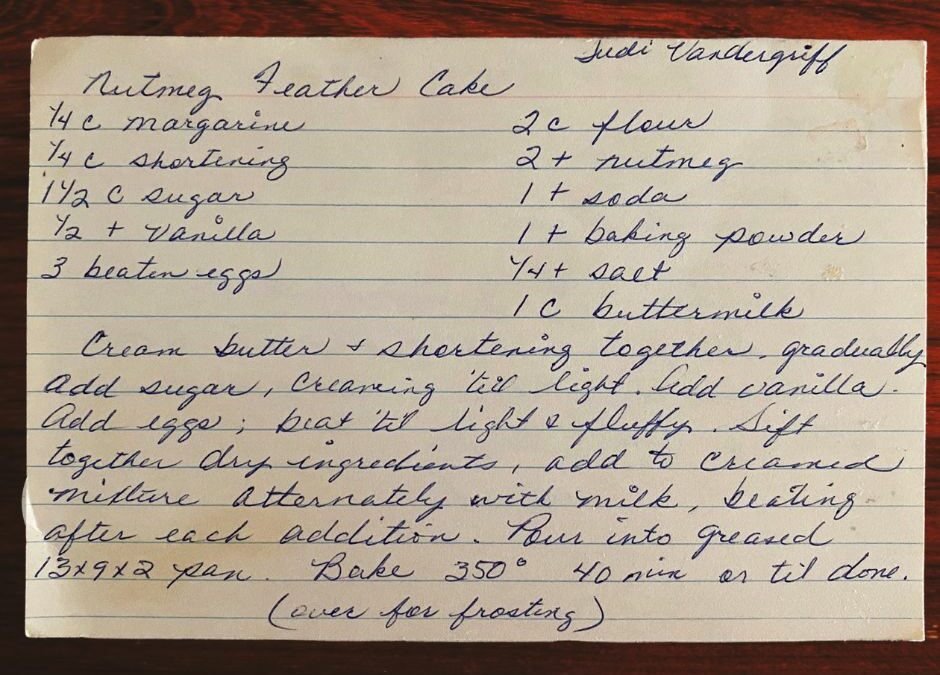 Judi Vandergriff
Nutmeg Feather Cake
1/4 c margarine 2 c flour
1/4 c shortening 2 t nutmeg
1 1/2 c sugar 1 t soda
1/2 t vanilla 1 t baking powder
3 beaten eggs 1/4 t salt
1 c buttermilk
Cream butter & shortening together, gradually
add sugar, creaming 'til light. Add vanilla.
Add eggs; beat 'til light & fluffy. Sift
together dry ingredients, add to creamed
mixture alternately with milk, beating
after each addition. Pour into greased
13x9x2 pan. Bake 350° 40 min or til done.
(over for frosting)